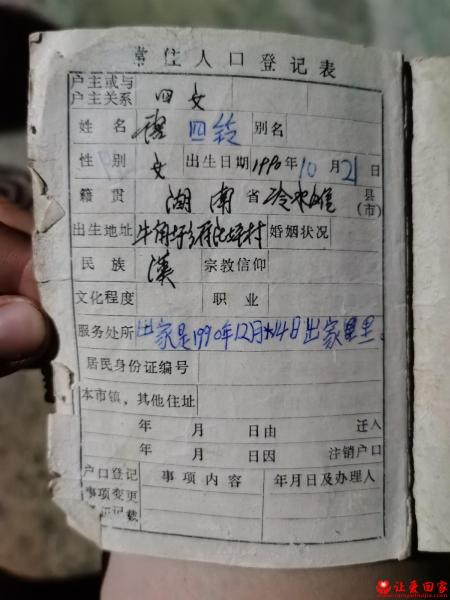 常住人口登记表
户主或与
户主关系 四女
姓名 四铃 别名
性别 女 出生日期 1990年10月21日
籍贯 湖南省冷水 县(市)
出生地址 牛角 村 婚姻状况
民族 汉 宗教信仰
文化程度 职业
服务处所 出家是1990年12月14日出家
居民身份证编号
本市镇,其他住址
年 月 日由 迁入
年 月 日因 注销户口
户口登记 事项内容 年月日及办理人
事项变更
记载
让爱回家